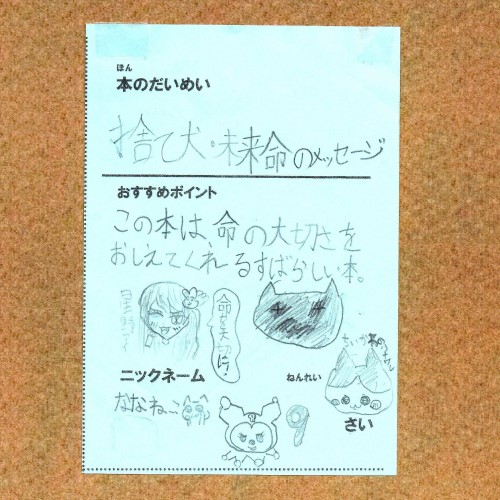 ほん
本のだいめい
捨て犬・未来命のメッセージ
おすすめポイント
この本は、命の大切さを
おしえてくれるすばらしい本。
命を大切に!
ニックネーム
ねんれい
ななねこ
9
さい